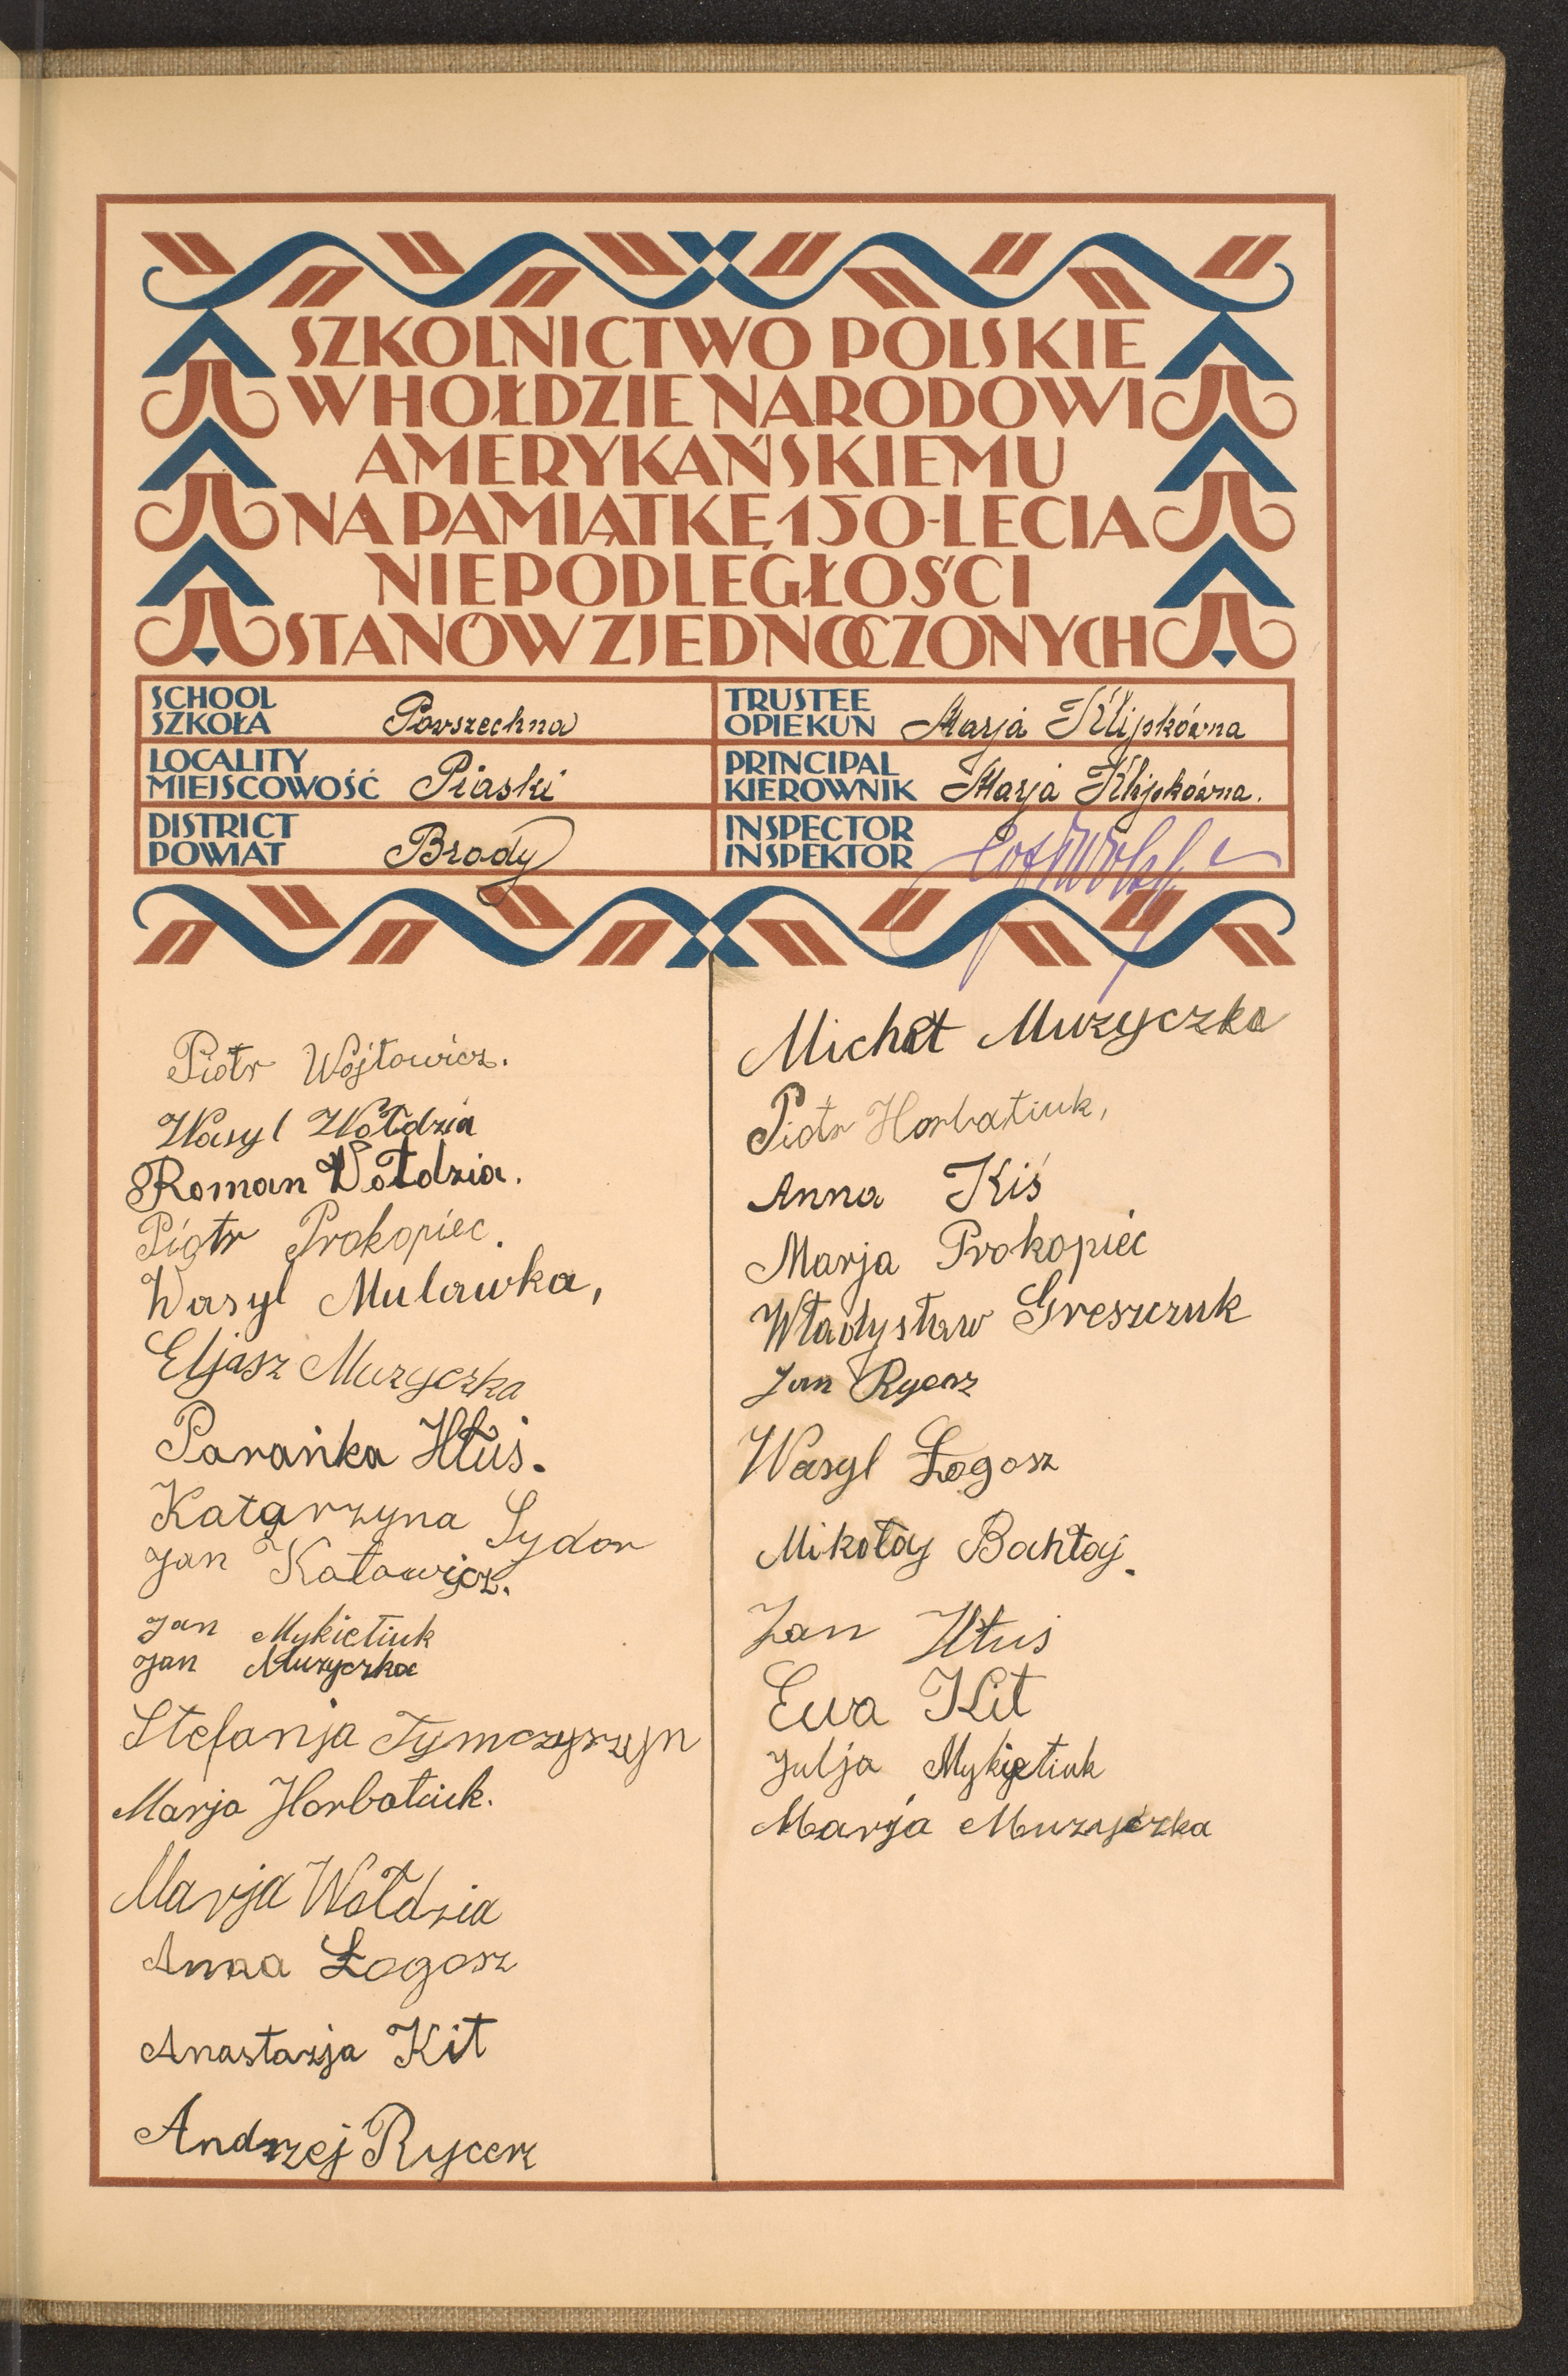 SZKOLNICTWO POLSKIE
W HOŁDZIE NARODOWI
AMERYKAŃSKIEMU
NA PAMIĄTKĘ 150-LECIA
NIEPODLEGŁOŚCI
STANÓW ZJEDNOCZONYCH
SCHOOL
SZKOŁA Powszechna
TRUSTEE
OPIEKUN Marja Klipkówna
LOCALITY
MIEJSCOWOŚĆ Piaski
PRINCIPAL
KIEROWNIK Marja Klipkówna.
DISTRICT
POWIAT Brody
INSPECTOR
INSPEKTOR
Piotr Wojtowicz.
Wasyl Wołdzia
Roman Wołdzia.
Piotr Prokopiec.
Wasyl Mulawka,
Eljasz Muzyczka
Parańka Hłuś.
Katarzyna Sydor
Jan Katowicz.
Jan Mykietiuk
Jan Muzyczka
Stefanja Tymczyszyn
Marja Horbatiuk.
Marja Wołdzia
Anna Łogosz
Anastazja Kit
Andrzej Rycerz
Michał Muzyczka
Piotr Horbatiuk,
Anna Kiś
Marja Prokopieć
Władysław Greszczuk
Jan Rycerz
Wasyl Łogosz
Mikołaj Bahłaj.
Jan Hłuś
Ewa Kit
Julja Mykietiuk
Marja Muzyczka